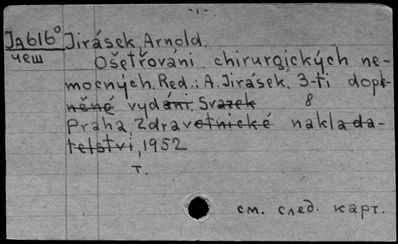 -1-
Ja616° Jirásek, Arnold.
чеш
Ošetřování chirurgických ne-
mocných. Red.: A. Jirásek. 3-ti dopl-
něné vydání. Svazek 8
Praha Zdravotnické naklada-
telství, 1952
т.
см. след. карт.